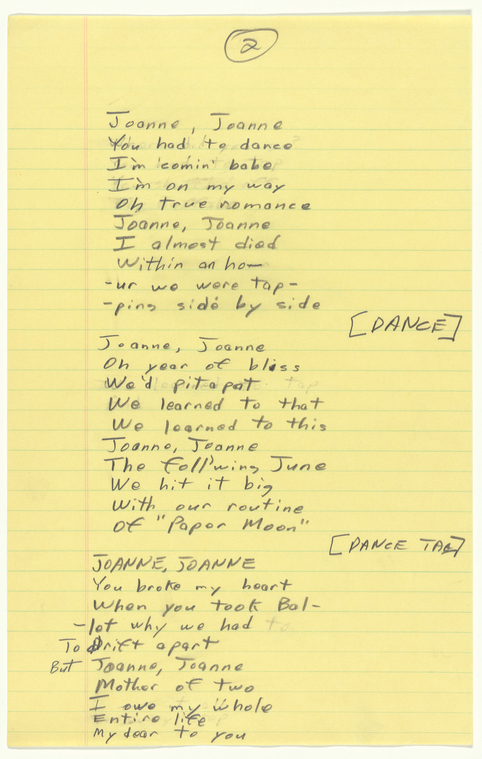 2
Joanne, Joanne
You had to dance
I'm comin' babe
I'm on my way
Oh true romance
Joanne, Joanne
I almost died
Within an ho-
-ur we were tap-
-ping side by side
[DANCE]
Joanne, Joanne
Oh year of bliss
We'd pitapat
We learned to that
We learned to this
Joanne, Joanne
The foll'wing June
We hit it big
With our routine
Of "Paper Moon"
[DANCE TAG]
JOANNE, JOANNE
You broke my heart
When you took Bal-
-let why we had to
To Drift apart
But Joanne, Joanne
Mother of two
I owe my whole
Entire life
My dear to you